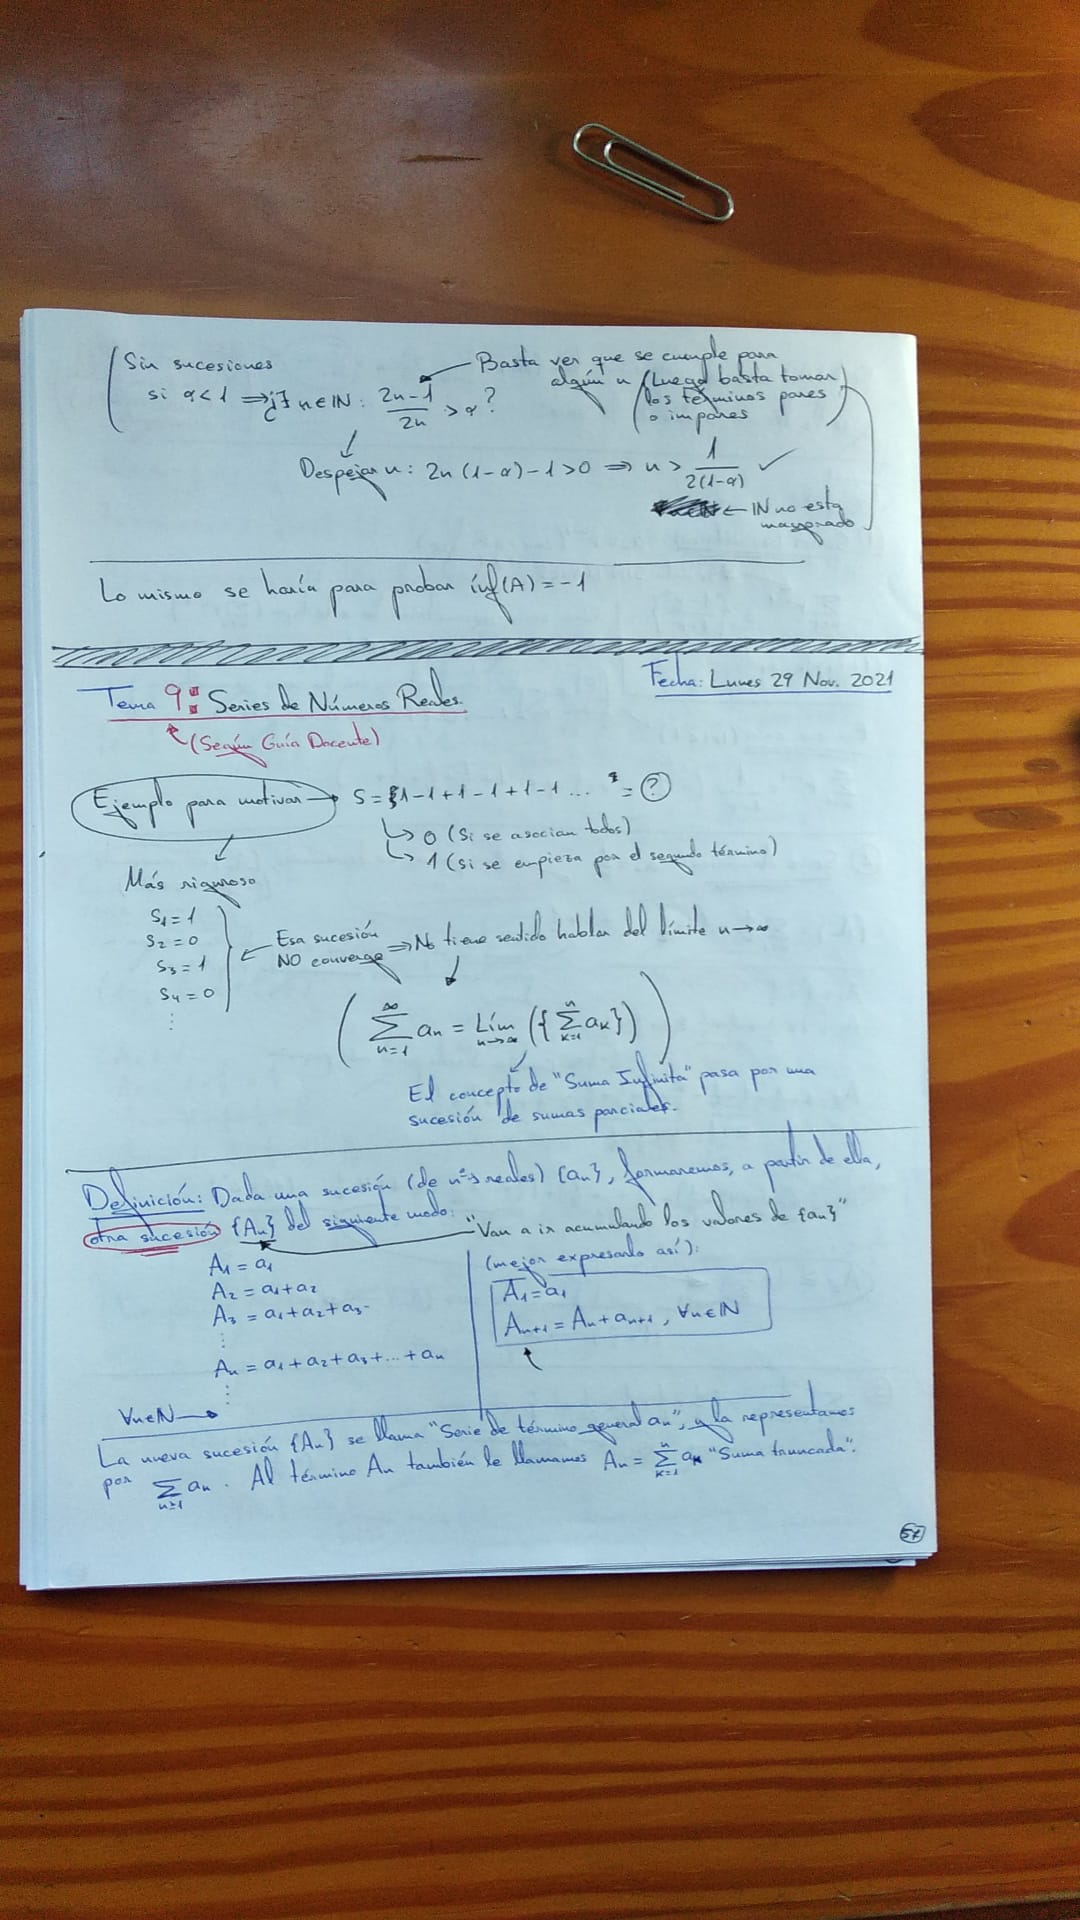 Sin sucesiones
si α<1 ⟹ ¿∃ n∈ℕ: (2n-1)/(2n) > α?
Basta ver que se cumple para
algún n (Luego basta tomar
los términos pares
o impares)
Despejar n: 2n(1-α)-1>0 ⟹ n > 1/(2(1-α)) ✓
← ℕ no está
mayorado
Lo mismo se haría para probar ínf(A)=-1
Fecha: Lunes 29 Nov. 2021
Tema 9: Series de Números Reales.
(Según Guía Docente)
Ejemplo para motivar → S = {1-1+1-1+1-1... = ?
↳ 0 (Si se asocian todos)
↳ 1 (si se empieza por el segundo término)
Más riguroso
S₁=1
S₂=0
S₃=1
S₄=0
⋮
← Esa sucesión
NO converge ⟹ No tiene sentido hablar del límite n→∞
( ∑_{n=1}^{∞} aₙ = Lím_{n→∞} ({∑_{k=1}^{n} aₖ}) )
El concepto de "Suma Infinita" pasa por una
sucesión de sumas parciales.
Definición: Dada una sucesión (de nºs reales) {aₙ}, formaremos, a partir de ella,
otra sucesión {Aₙ} del siguiente modo:
"Van a ir acumulando los valores de {aₙ}"
A₁ = a₁
A₂ = a₁+a₂
A₃ = a₁+a₂+a₃
⋮
Aₙ = a₁+a₂+a₃+...+aₙ
⋮
∀n∈ℕ →
(mejor expresarlo así):
A₁=a₁
Aₙ₊₁ = Aₙ+aₙ₊₁, ∀n∈ℕ
La nueva sucesión {Aₙ} se llama "Serie de término general aₙ", y la representamos
por ∑_{n≥1} aₙ. Al término Aₙ también le llamamos Aₙ = ∑_{k=1}^{n} aₖ "Suma truncada".
57